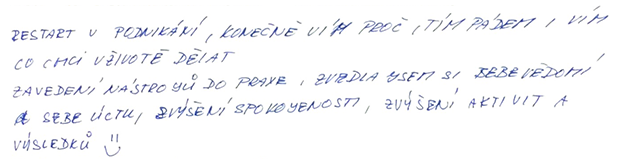 RESTART V PODNIKÁNÍ, KONEČNĚ VÍM PROČ, TÍM PÁDEM I VÍM
CO CHCI V ŽIVOTĚ DĚLAT
ZAVEDENÍ NÁSTROJŮ DO PRAXE, ZVEDLA JSEM SI SEBEVĚDOMÍ
A SEBEÚCTU, ZVÝŠENÍ SPOKOJENOSTI, ZVÝŠENÍ AKTIVIT A
VÝSLEDKŮ :)